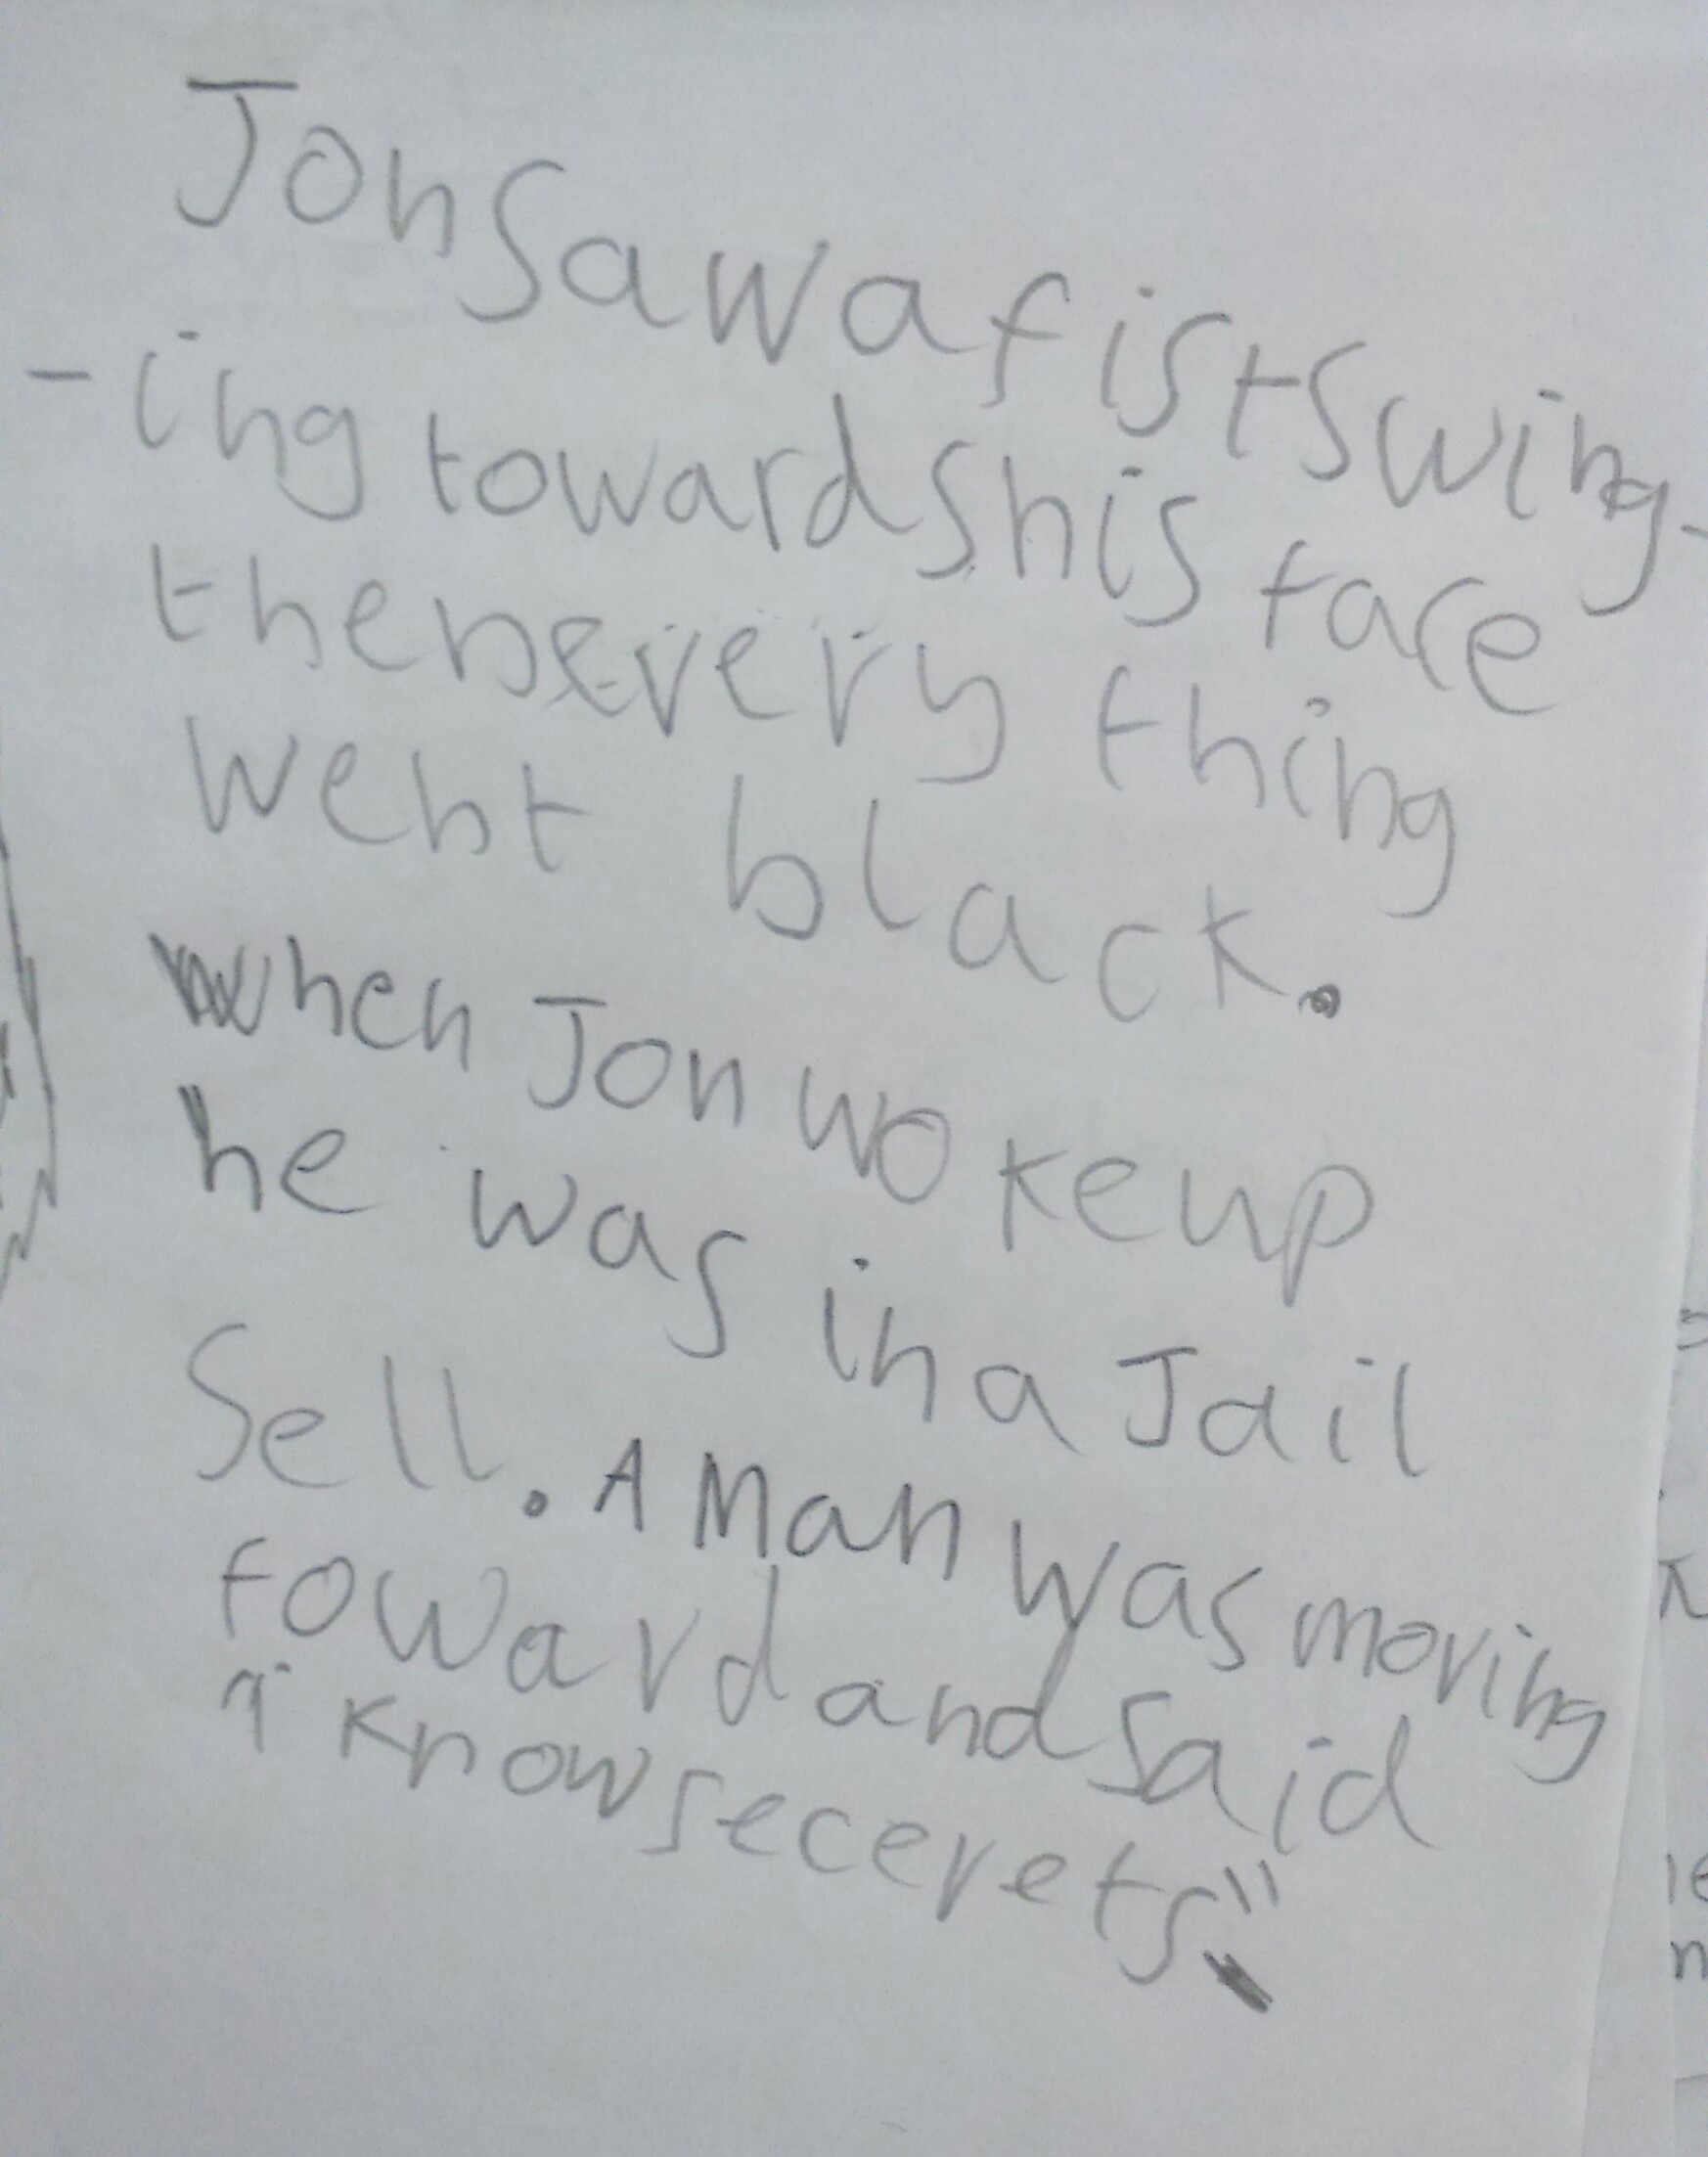 Jon saw a fist swing-
-ing towards his face
then every thing
went black.
when Jon woke up
he was in a Jail
Sell. A Man was moving
foward and said
"I know secerets"